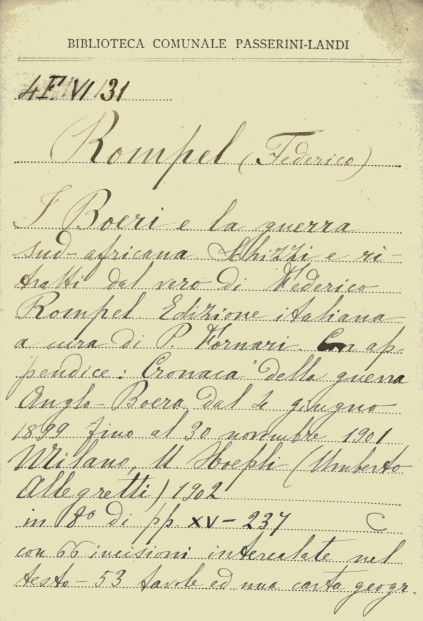 BIBLIOTECA COMUNALE PASSERINI-LANDI
4F/VI/31
Rompel (Federico)
I Boeri e la guerra
sud-africana Schizzi e ri-
tratti dal vero di Federico
Rompel Edizione italiana
a cura di P. Fornari. Con ap
pendice: Cronaca della guerra
Anglo-Boera dal 2 giugno
1899 fino al 30 novembre 1901
Milano, U Hoepli (Umberto
Allegretti) 1902
in 8º di pp XV-237 C
con 66 incisioni intercalate nel
testo - 53 tavole ed una carta geogr.